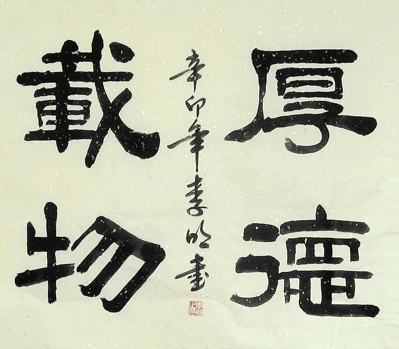 厚德
載物
辛卯年李明書